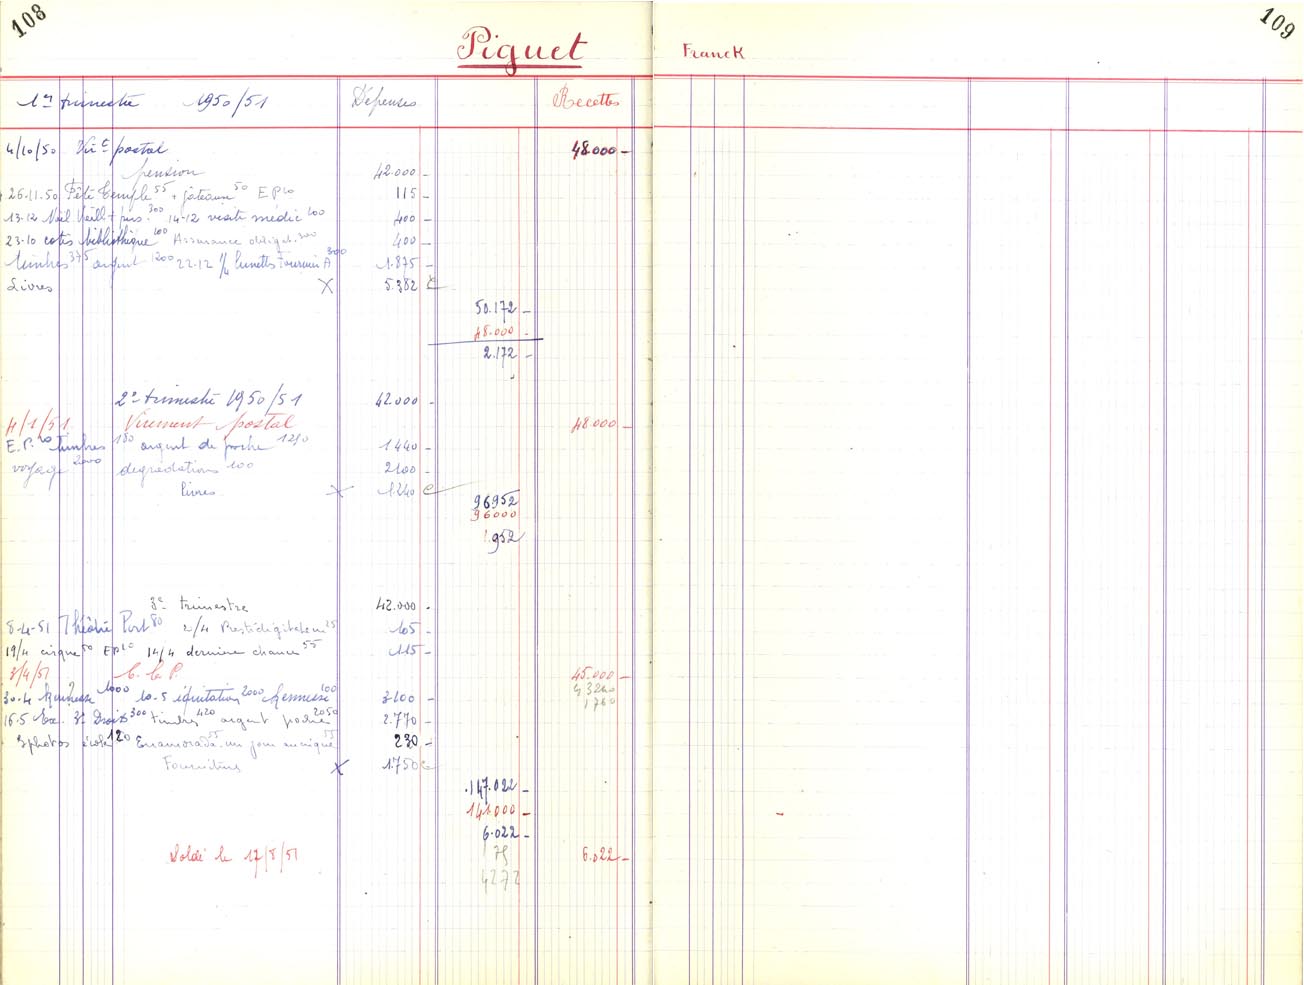 108
109
Piguet Franck
1er trimestre 1950/51 Dépenses Recettes
4/10/50 Virt postal 48.000 -
pension 42.000 -
26.11.50 Fête Temple 55 + gâteaux 50 EP 10 115 -
13-12 Noël Vieill + 300 14-12 visite médic 100 400 -
23-10 cotis bibliothèque 100 Assurance obligat. 300 400 -
timbres 375 argent 1200 22.12 lunettes A 300 1.875 -
Livres X 5.382
50.172 -
48.000 -
2.172 -
2e trimestre 1950/51 42.000 -
4/1/51 Virement postal 48.000 -
E.P. 40 timbres 180 argent de poche 1210 1440 -
voyage 2000 dégradations 100 2100 -
livres X 1240
96952
96000
952
3e trimestre 42.000 -
8-4-51 Théâtre Port 80 2/4 Prestidigitateur 25 105 -
19/4 cirque 50 EP 10 14/4 dernière chance 55 115 -
3/4/51 C.C.P. 45.000 -
43240
1760
30.4 Kermesse 1000 10.5 équitation 2000 Kermesse 100 3100 -
16.5 Exc. 3 Droits 300 timbres 420 argent poche 2050 2.770 -
3 photos école 120 Enamorada 55 un jour au cirque 55 230 -
Fournitures X 1.750
147.022 -
141.000 -
6.022 -
Soldé le 17/8/51 6.022 -
4272